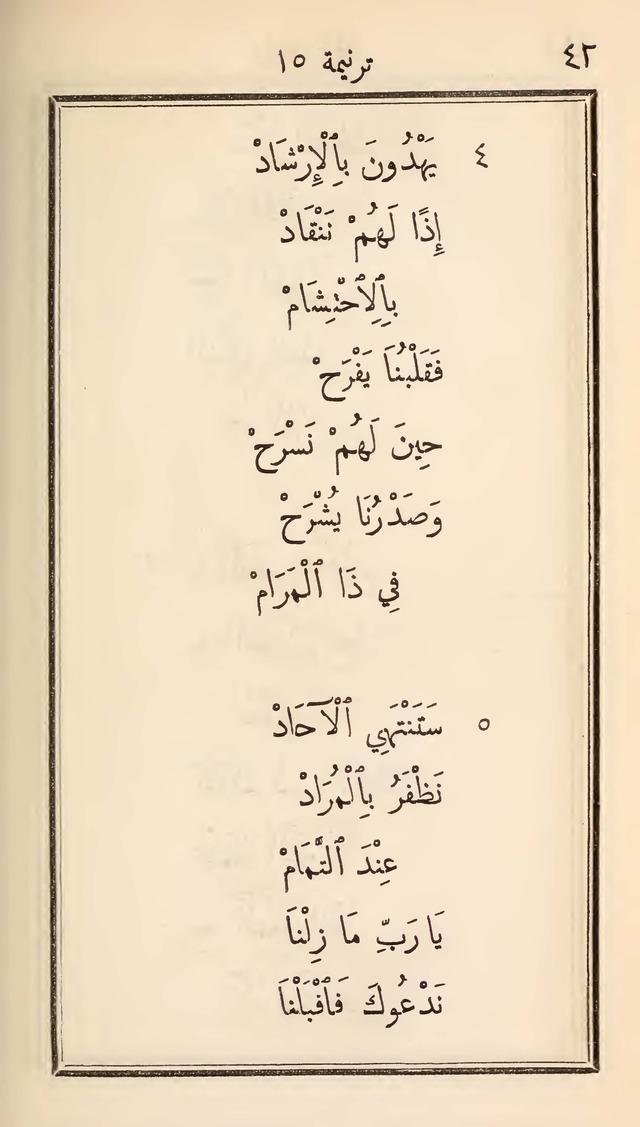 ٤٢
ترنيمة ١٥
٤ يَهْدُونَ بِٱلْإِرْشَادْ
إِذًا لَهُمْ نَنْقَادْ
بِٱلِٱحْتِشَامْ
فَقَلْبُنَا يَفْرَحْ
حِينَ لَهُمْ نَسْرَحْ
وَصَدْرُنَا يُشْرَحْ
فِي ذَا ٱلْمَرَامْ
٥ سَتَنْتَهِي ٱلْآحَادْ
نَظْفَرُ بِٱلْمُرَادْ
عِنْدَ ٱلتَّمَامْ
يَا رَبِّ مَا زِلْنَا
نَدْعُوكَ فَٱقْبَلْنَا